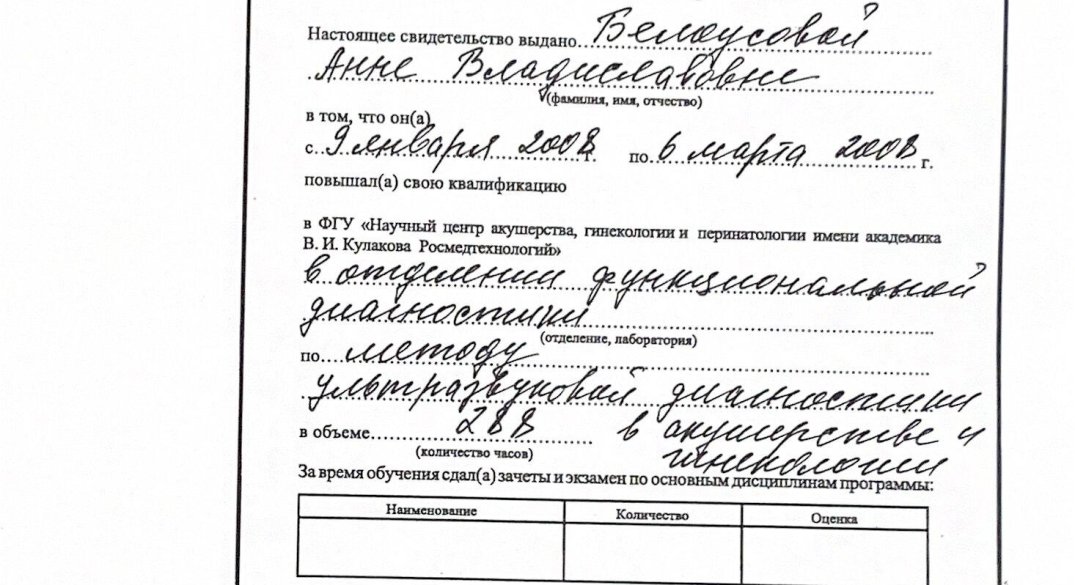 Настоящее свидетельство выдано Белоусовой
Анне Владиславовне
(фамилия, имя, отчество)
в том, что он(а)
с 9 января 2008 г. по 6 марта 2008 г.
повышал(а) свою квалификацию
в ФГУ «Научный центр акушерства, гинекологии и перинатологии имени академика
В. И. Кулакова Росмедтехнологий»
в отделении функциональной
диагностики
(отделение, лаборатория)
по методу
ультразвуковой диагностики
в объеме 288 в акушерстве и
(количество часов) гинекологии
За время обучения сдал(а) зачеты и экзамен по основным дисциплинам программы:
Наименование Количество Оценка